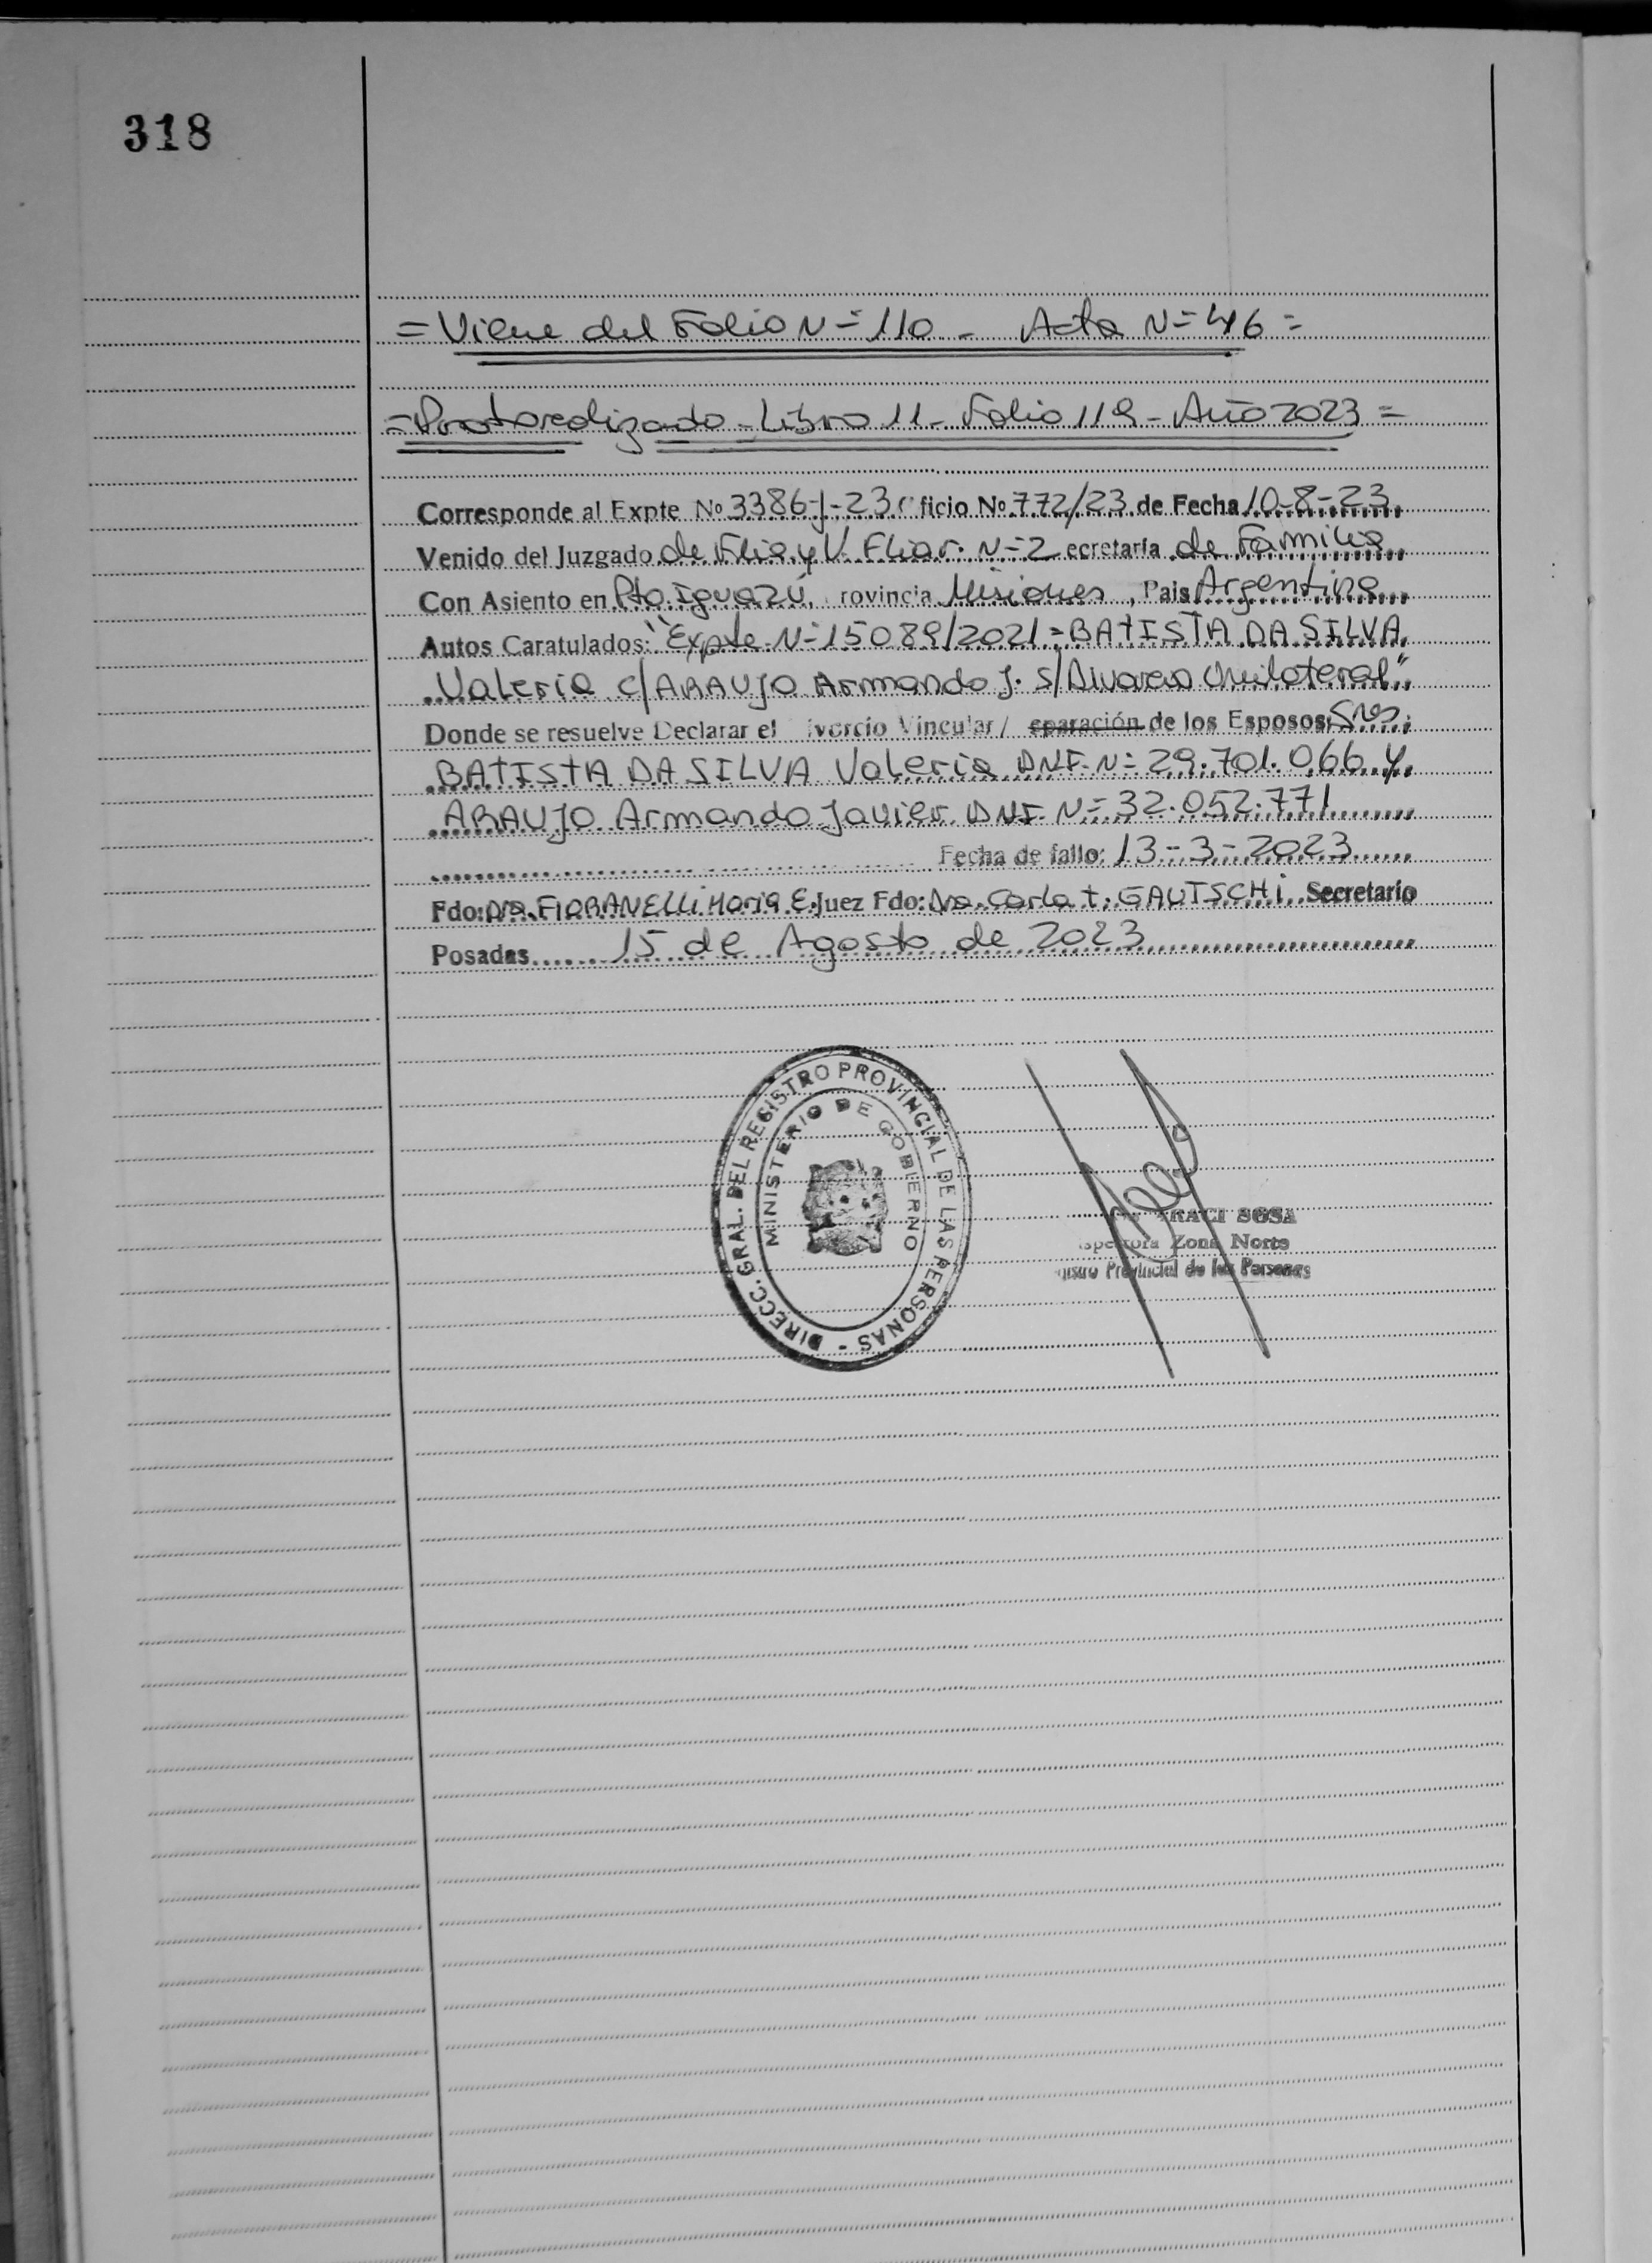 318
= Viene del Folio N= 110 - Acta N= 46 =
= Protocolizado - Libro 11 - Folio 119 - Año 2023 =
Corresponde al Expte Nº 3386-J-23 ficio Nº 772/23 de Fecha 10-8-23
Venido del Juzgado de Flia y V. Fliar. N=2 ecretaría de Familia
Con Asiento en Pto. Iguazú, rovincia Misiones, Pais Argentina
Autos Caratulados: "Expte N=15089/2021 = BATISTA DA SILVA
Valeria c/ ARAUJO Armando J. s/ Divorcio Unilateral"
Donde se resuelve Declarar el ivorcio Vincular / eparación de los Esposos: Sres.
BATISTA DA SILVA Valeria DNI-N= 29.701.066 y
ARAUJO Armando Javier DNI N= 32.052.771
Fecha de fallo: 13-3-2023
Fdo: Dra. FIORANELLI Maria E. Juez Fdo: Dra. Carla t. GAUTSCHi Secretario
Posadas 15 de Agosto de 2023
DIRECC. GRAL. DEL REGISTRO PROVINCIAL DE LAS PERSONAS -
MINISTERIO DE GOBIERNO
ARACI SOSA
Zona Norte
Provincial de las Personas